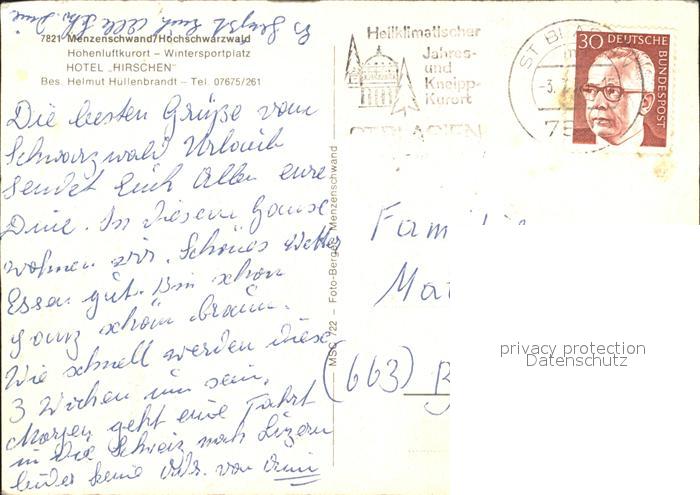 Es grüsst Euch alle
7821 Menzenschwand/Hochschwarzwald
Höhenluftkurort – Wintersportplatz
HOTEL „HIRSCHEN"
Bes. Helmut Hüllenbrandt – Tel. 07675/261
Die besten Grüße vom
Schwarzwald Urlaub
sendet Euch Allen eure
In diesem Hause
wohnen wir. Schönes Wetter
Essen gut. Bin schon
ganz schön braun.
Wie schnell werden diese
3 Wochen um sein.
Morgen geht eine Fahrt
in die Schweiz nach Luzern
leider keine von
MSC 722 – Foto-Berger, Menzenschwand
Heilklimatischer
Jahres-
und
Kneipp-
Kurort
ST BLASIEN
ST BLAS
-3.
30 DEUTSCHE
BUNDESPOST
Fam
Ma
(663)
privacy protection
Datenschutz